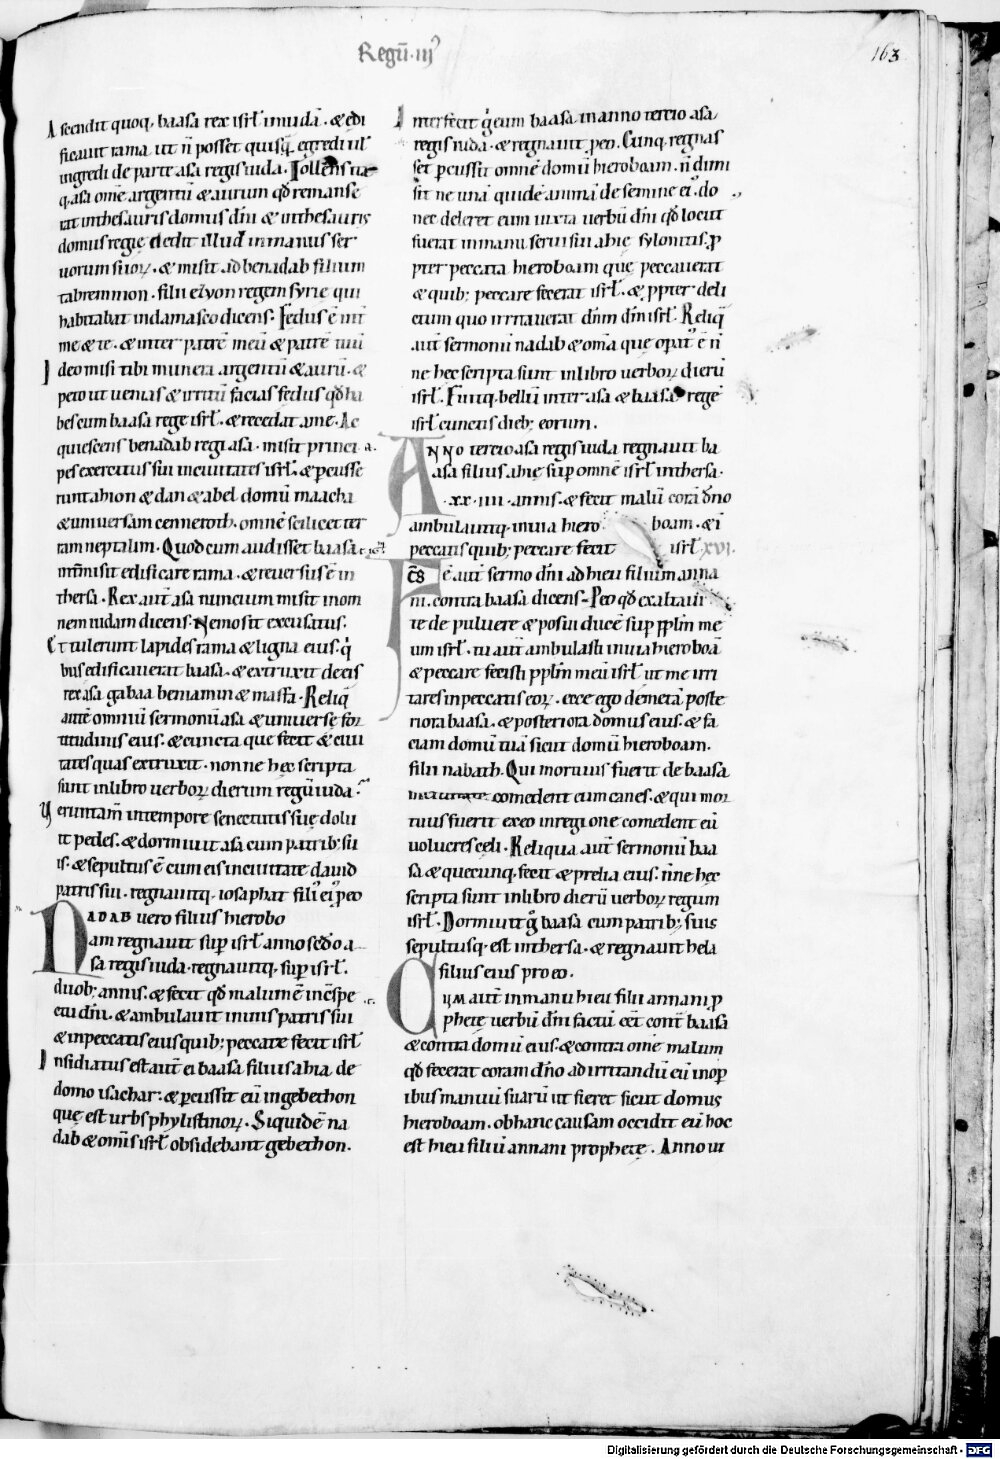 Regū·iij
163
Ascendit quoq; baasa rex isrł inuidā. & edi
ficauit rama ut ñ posset quisq̄ egredi uł
ingredi de parte asa regis iuda. Tollens ita
q; asa om̄e argentū & aurum qđ remanse
rat inthesauris domus dn̄i & inthesauris
domus regię dedit illud inmanus ser
uorum suoꝝ. & misit ad benadab filium
tabremmon. filii ezyon regem syrię qui
habitabat indamasco dicens. Fedus ē int̄
me & te. & inter patrē meū & patrē tuū
Ideo misi tibi munera argentū & aurū. &
peto ut uenias & irritū facias fędus qđ ha
bes cum baasa rege isrł. & recedat ame. Ac
quiescens benadab regi asa. misit princi
pes exercitus sui inciuitates isrł. & ꝑcusse
runt ahion & dan & abel domū maacha
& uniuersam cenneroth. omnē scilicet ter
ram neptalim. Quod cum audisset baasa
int̄misit edificare rama. & reuersus ē in
thersa. Rex aut̄ asa nuncium misit inom
nem iudam dicens. Nemo sit excusatus.
Et tulerunt lapides rama & ligna eius. q̇
bus edificauerat baasa. & extruxit de eis
rex asa gabaa beniamin & masfa. Reliq̄
aut̄ē omniū sermonū asa & uniuerse for
titudinis eius. & cuncta que fecit & ciui
tates quas extruxit. nonne hęc scripta
sunt inlibro uerboꝝ dierum regū iuda.
Ueruntam̄ intempore senectutis suę dolu
it pedes. & dormiuit asa cum patrib; su
is. & sepultus ē cum eis inciuitate dauid
patris sui. regnauitq; iosaphat fili᷒ ei᷒ p̄eo
NADAB uero filius hierobo
am regnauit sup̄ isrł anno scđo a
sa regis iuda. regnauitq; sup̄ isrł.
duob; annis. & fecit qđ malum ē inc̄spe
ctu dn̄i. & ambulauit inuiis patris sui
& inpeccatis eius quib; peccare fecit isrł
Insidiatus est aut̄ ei baasa filius ahia de
domo isachar. & ꝑcussit eū ingebethon
quę est urbs phylistinoꝝ. Siquidē na
dab & om̄is isrł obsidebant gebethon.
Interfecit ġ eum baasa inanno tercio asa
regis iuda. & regnauit p̄eo. Cunq; regnas
set ꝑcussit omnē domū hieroboam. ñ dimi
sit ne unā quidē animā de semine ei᷒. do
nec deleret eum iuxta uerbū dn̄i qđ locut᷒
fuerat inmanu serui sui ahię sylonitis. ꝓ
pter peccata hieroboam quę peccauerat
& quib; peccare fecerat isrł. & ꝓpter deli
ctum quo irritauerat dn̄m dm̄ isrł. Reliq̄
aut̄ sermonū nadab & om̄a que oꝑat᷒ ē ñ
ne hęc scripta sunt inlibro uerboꝝ dierū
isrł. Fuitq; bellū inter asa & baasa regē
isrł cunctis dieb; eorum.
ANNO tercio asa regis iuda regnauit ba
asa filius ahię sup̄ omnē isrł inthersa.
.xx.iiii. annis. & fecit malū corā dn̄o
ambulauitq; inuia hiero boam. & ī
peccatis quib; peccare fecit isrł. xvi.
FC̄S ē aut̄ sermo dn̄i ad hieu filium anna
ni. contra baasa dicens. Pro eo qđ exaltaui
te de puluere & posui ducē sup̄ pplm̄ me
um isrł. tu aut̄ ambulasti inuia hieroboā
& peccare fecisti pplm̄ meū isrł ut me irri
tares inpeccatis eoꝝ. ecce ego demetā poste
riora baasa. & posteriora domus eius. & fa
ciam domū tuā sicut domū hieroboam.
filii nabath. Qui mortuus fuerit de baasa
inciuitate comedent eum canes. & qui mor
tuus fuerit ex eo inregione comedent eū
uolucres cęli. Reliqua aut̄ sermonū baa
sa & quecunq; fecit & prelia eius. ñne hęc
scripta sunt inlibro dierū uerboꝝ regum
isrł. Dormiuit ġ baasa cum patrib; suis
sepultusq; est inthersa. & regnauit hela
filius eius pro eo.
CUM aut̄ inmanu hieu filii annani ꝓ
phetę uerbū dn̄i factū eēt cont̄ baasa
& contra domū eius. & contra om̄e malum
qđ fecerat coram dn̄o ad irritandū eū inoꝑ
ibus manuū suarū ut fieret sicut domus
hieroboam. ob hanc causam occidit eū hoc
est hieu filiū annani prophetę. Anno ui
Digitalisierung gefördert durch die Deutsche Forschungsgemeinschaft - DFG